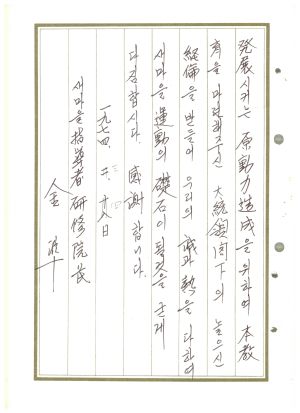 發展시키는 原動力造成을 위하여 本敎
育을 마련해주신 大統領閣下의 높으신
經倫을 받들어 우리의 誠과 熱을 다하여
새마을 運動의 礎石이 될것을 굳게
다짐합시다. 感謝합니다.
一九七四. 二. 十八日
새마을指導者硏修院長
金 準